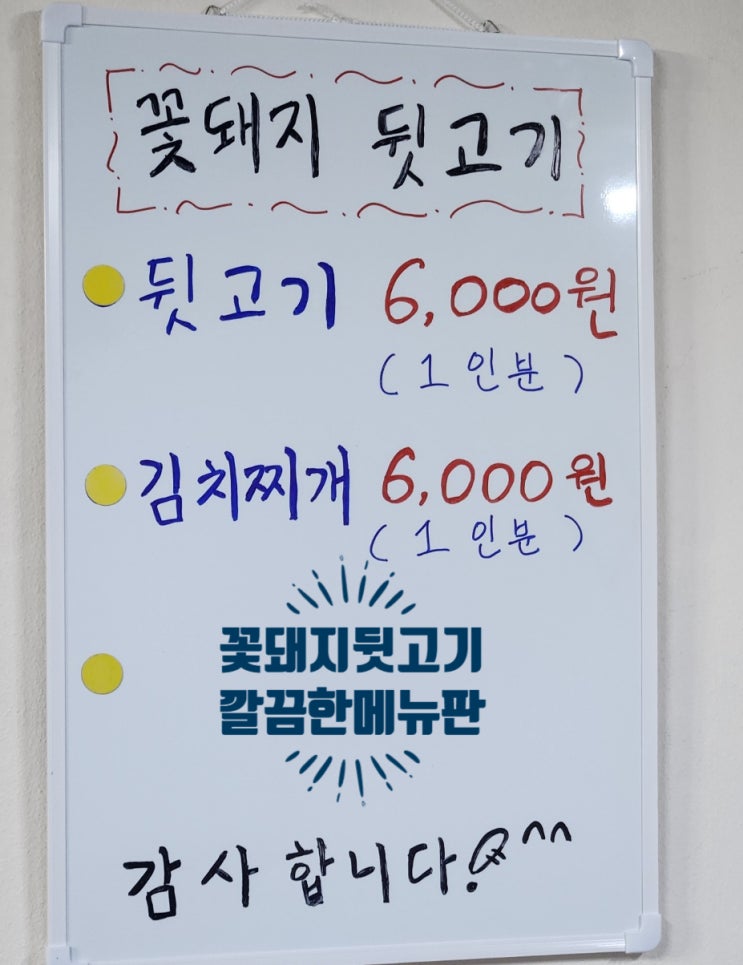 꽃돼지 뒷고기
뒷고기 6,000원
(1인분)
김치찌개 6,000원
(1인분)
꽃돼지뒷고기
깔끔한메뉴판
감사합니다. ^^